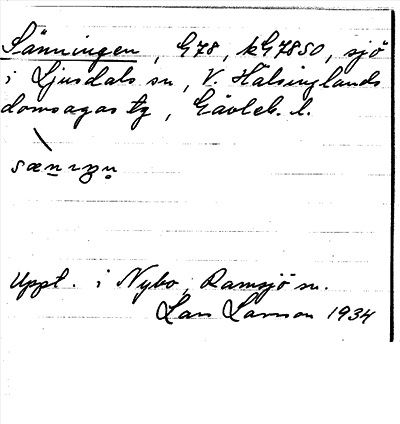 Sänningen, G78, kG7850, sjö
i Ljusdals sn, V. Hälsinglands
domsagas tg, Gävleb. l.
Uppt. i Nybo, Ramsjö sn.
Lars Larsson 1934